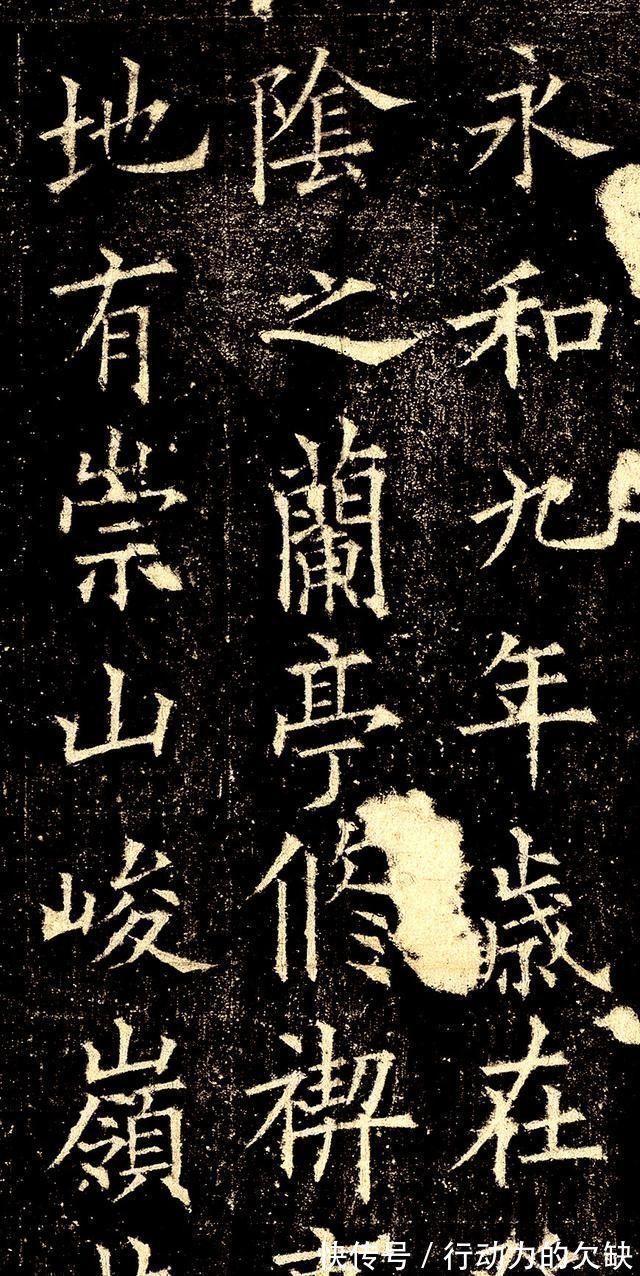 永和九年歲在
陰之蘭亭脩禊
地有崇山峻嶺
快传号 / 行动力的欠缺